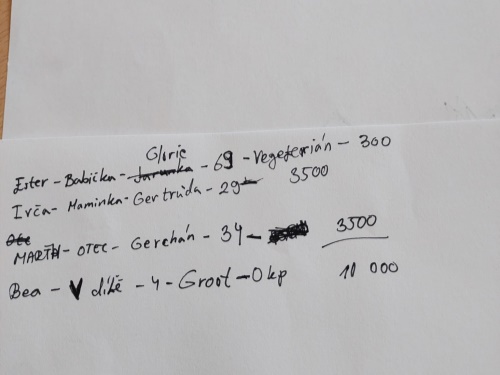 Glorie
Ester - Babička - Jarunka - 69 - Vegetarián - 300
Irča - Maminka - Gertrúda - 29 - 3500
Otc
MARTIN - OTEC - Gerchán - 34 - 3500
Bea - dítě - 4 - Groot - 0 kp 10 000